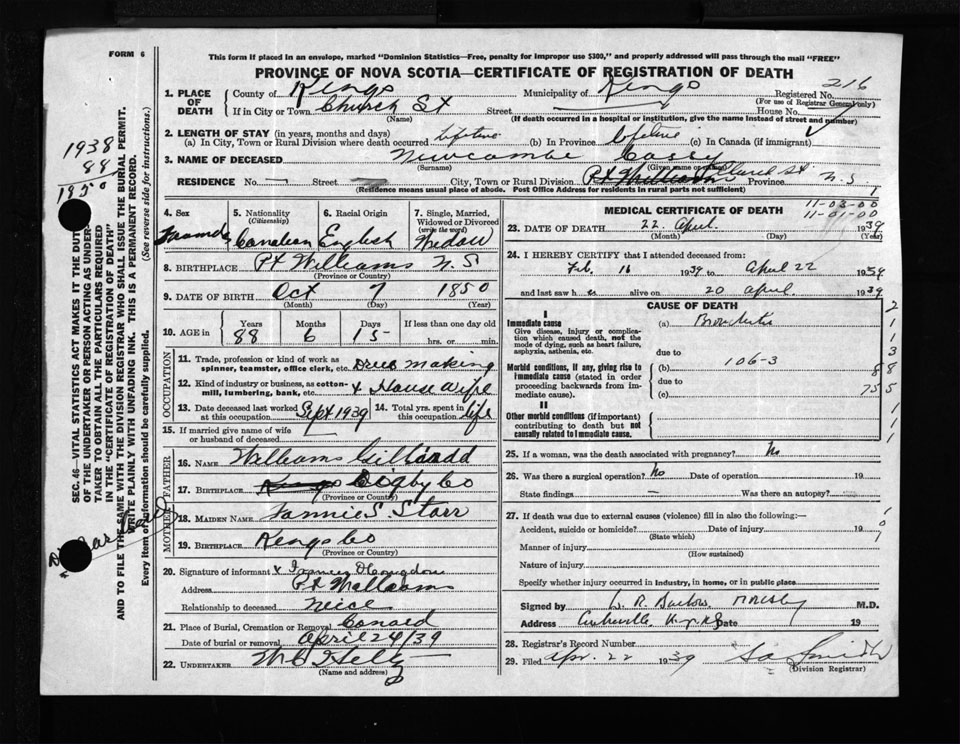 FORM 6
This form if placed in an envelope, marked "Dominion Statistics—Free, penalty for improper use $300," and properly addressed will pass through the mail "FREE"
PROVINCE OF NOVA SCOTIA—CERTIFICATE OF REGISTRATION OF DEATH
216
1. PLACE OF DEATH County of Kings Municipality of Kings Registered No.
(For use of Registrar General only)
If in City or Town Church St Street House No.
(Name) (If death occurred in a hospital or institution, give the name instead of street and number)
2. LENGTH OF STAY (in years, months and days)
(a) In City, Town or Rural Division where death occurred Lifetime (b) In Province Lifetime (c) In Canada (if immigrant)
3. NAME OF DECEASED Newcombe Cassy
(Surname) (Given name or names)
RESIDENCE No. — Street City, Town or Rural Division Pt Williams Church St Province N.S
(Residence means usual place of abode. Post Office Address for residents in rural parts not sufficient)
1938
88
1850
SEC. 46—VITAL STATISTICS ACT MAKES IT THE DUTY
OF THE UNDERTAKER OR PERSON ACTING AS UNDER-
TAKER TO OBTAIN ALL THE PARTICULARS REQUIRED
IN THE "CERTIFICATE OF REGISTRATION OF DEATH"
AND TO FILE THE SAME WITH THE DIVISION REGISTRAR WHO SHALL ISSUE THE BURIAL PERMIT.
WRITE PLAINLY WITH UNFADING INK. THIS IS A PERMANENT RECORD.
Every item of information should be carefully supplied. (See reverse side for instructions.)
4. Sex
5. Nationality (Citizenship) Canadian
6. Racial Origin English
7. Single, Married, Widowed or Divorced (write the word) Widow
8. BIRTHPLACE Pt Williams N.S
(Province or Country)
9. DATE OF BIRTH Oct 7 1850
(Month) (Day) (Year)
10. AGE in Years Months Days If less than one day old
88 6 15 hrs. or min.
OCCUPATION
11. Trade, profession or kind of work as spinner, teamster, office clerk, etc. Dress making
12. Kind of industry or business, as cotton-mill, lumbering, bank, etc. + House Wife
13. Date deceased last worked at this occupation Sept 1939 14. Total yrs. spent in this occupation life
15. If married give name of wife or husband of deceased
FATHER
16. NAME Williams
17. BIRTHPLACE Kings Digby Co
(Province or Country)
MOTHER
18. MAIDEN NAME Fannie S. Starr
19. BIRTHPLACE Kings Co
(Province or Country)
20. Signature of informant x
Address Pt Williams
Relationship to deceased Neice
21. Place of Burial, Cremation or Removal Canard
Date of burial or removal April 24/39
22. UNDERTAKER
(Name and address)
11-03-00
11-01-00
MEDICAL CERTIFICATE OF DEATH
23. DATE OF DEATH 22 April 1939
(Month) (Day) (Year)
24. I HEREBY CERTIFY that I attended deceased from:
Feb. 16 1939 to April 22 1939
and last saw h er alive on 20 April 1939
CAUSE OF DEATH
I
Immediate cause
Give disease, injury or complication which caused death, not the mode of dying, such as heart failure, asphyxia, asthenia, etc.
(a) Bronchitis
due to
Morbid conditions, if any, giving rise to immediate cause (stated in order proceeding backwards from immediate cause).
(b) 106-3
due to
(c)
II
Other morbid conditions (if important) contributing to death but not causally related to immediate cause.
25. If a woman, was the death associated with pregnancy? No
26. Was there a surgical operation? No Date of operation 19
State findings — Was there an autopsy?
27. If death was due to external causes (violence) fill in also the following:—
Accident, suicide or homicide? Date of injury 19
(State which)
Manner of injury
(How sustained)
Nature of injury
Specify whether injury occurred in industry, in home, or in public place
Signed by M.D.
Address Date 19
28. Registrar's Record Number
29. Filed Apr. 22 1939 Smith
(Division Registrar)